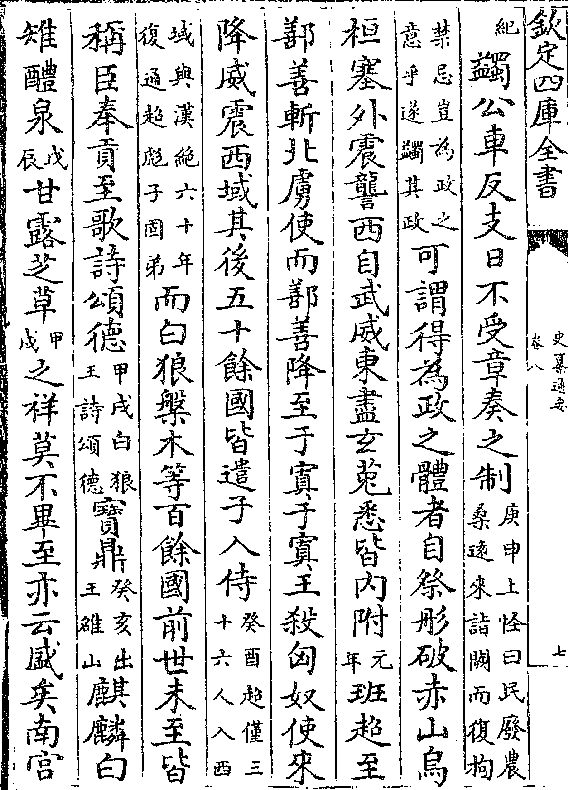 欽定四庫全書
史纂通要
卷八
七
紀蠲公車反支日不受章奏之制庚申上怪曰民廢農桑逺來詣闕而復拘
禁忌豈為政之意乎遂蠲其政可謂得為政之體者自祭肜破赤山烏
桓塞外震讋西自武威東盡玄莵悉皆内附元年班超至
鄯善斬北虜使而鄯善降至于寘于寘王殺匈奴使來
降威震西域其後五十餘國皆遣子入侍癸酉超僅三十六人入西
域與漢絶六十年復通超彪子固弟而白狼槃木等百餘國前世未至皆
稱臣奉貢至歌詩頌德甲戌白狼王詩頌德寶鼎癸亥出王雒山麒麟白
雉醴泉戊辰甘露芝草甲戌之祥莫不畢至亦云盛矣南宫